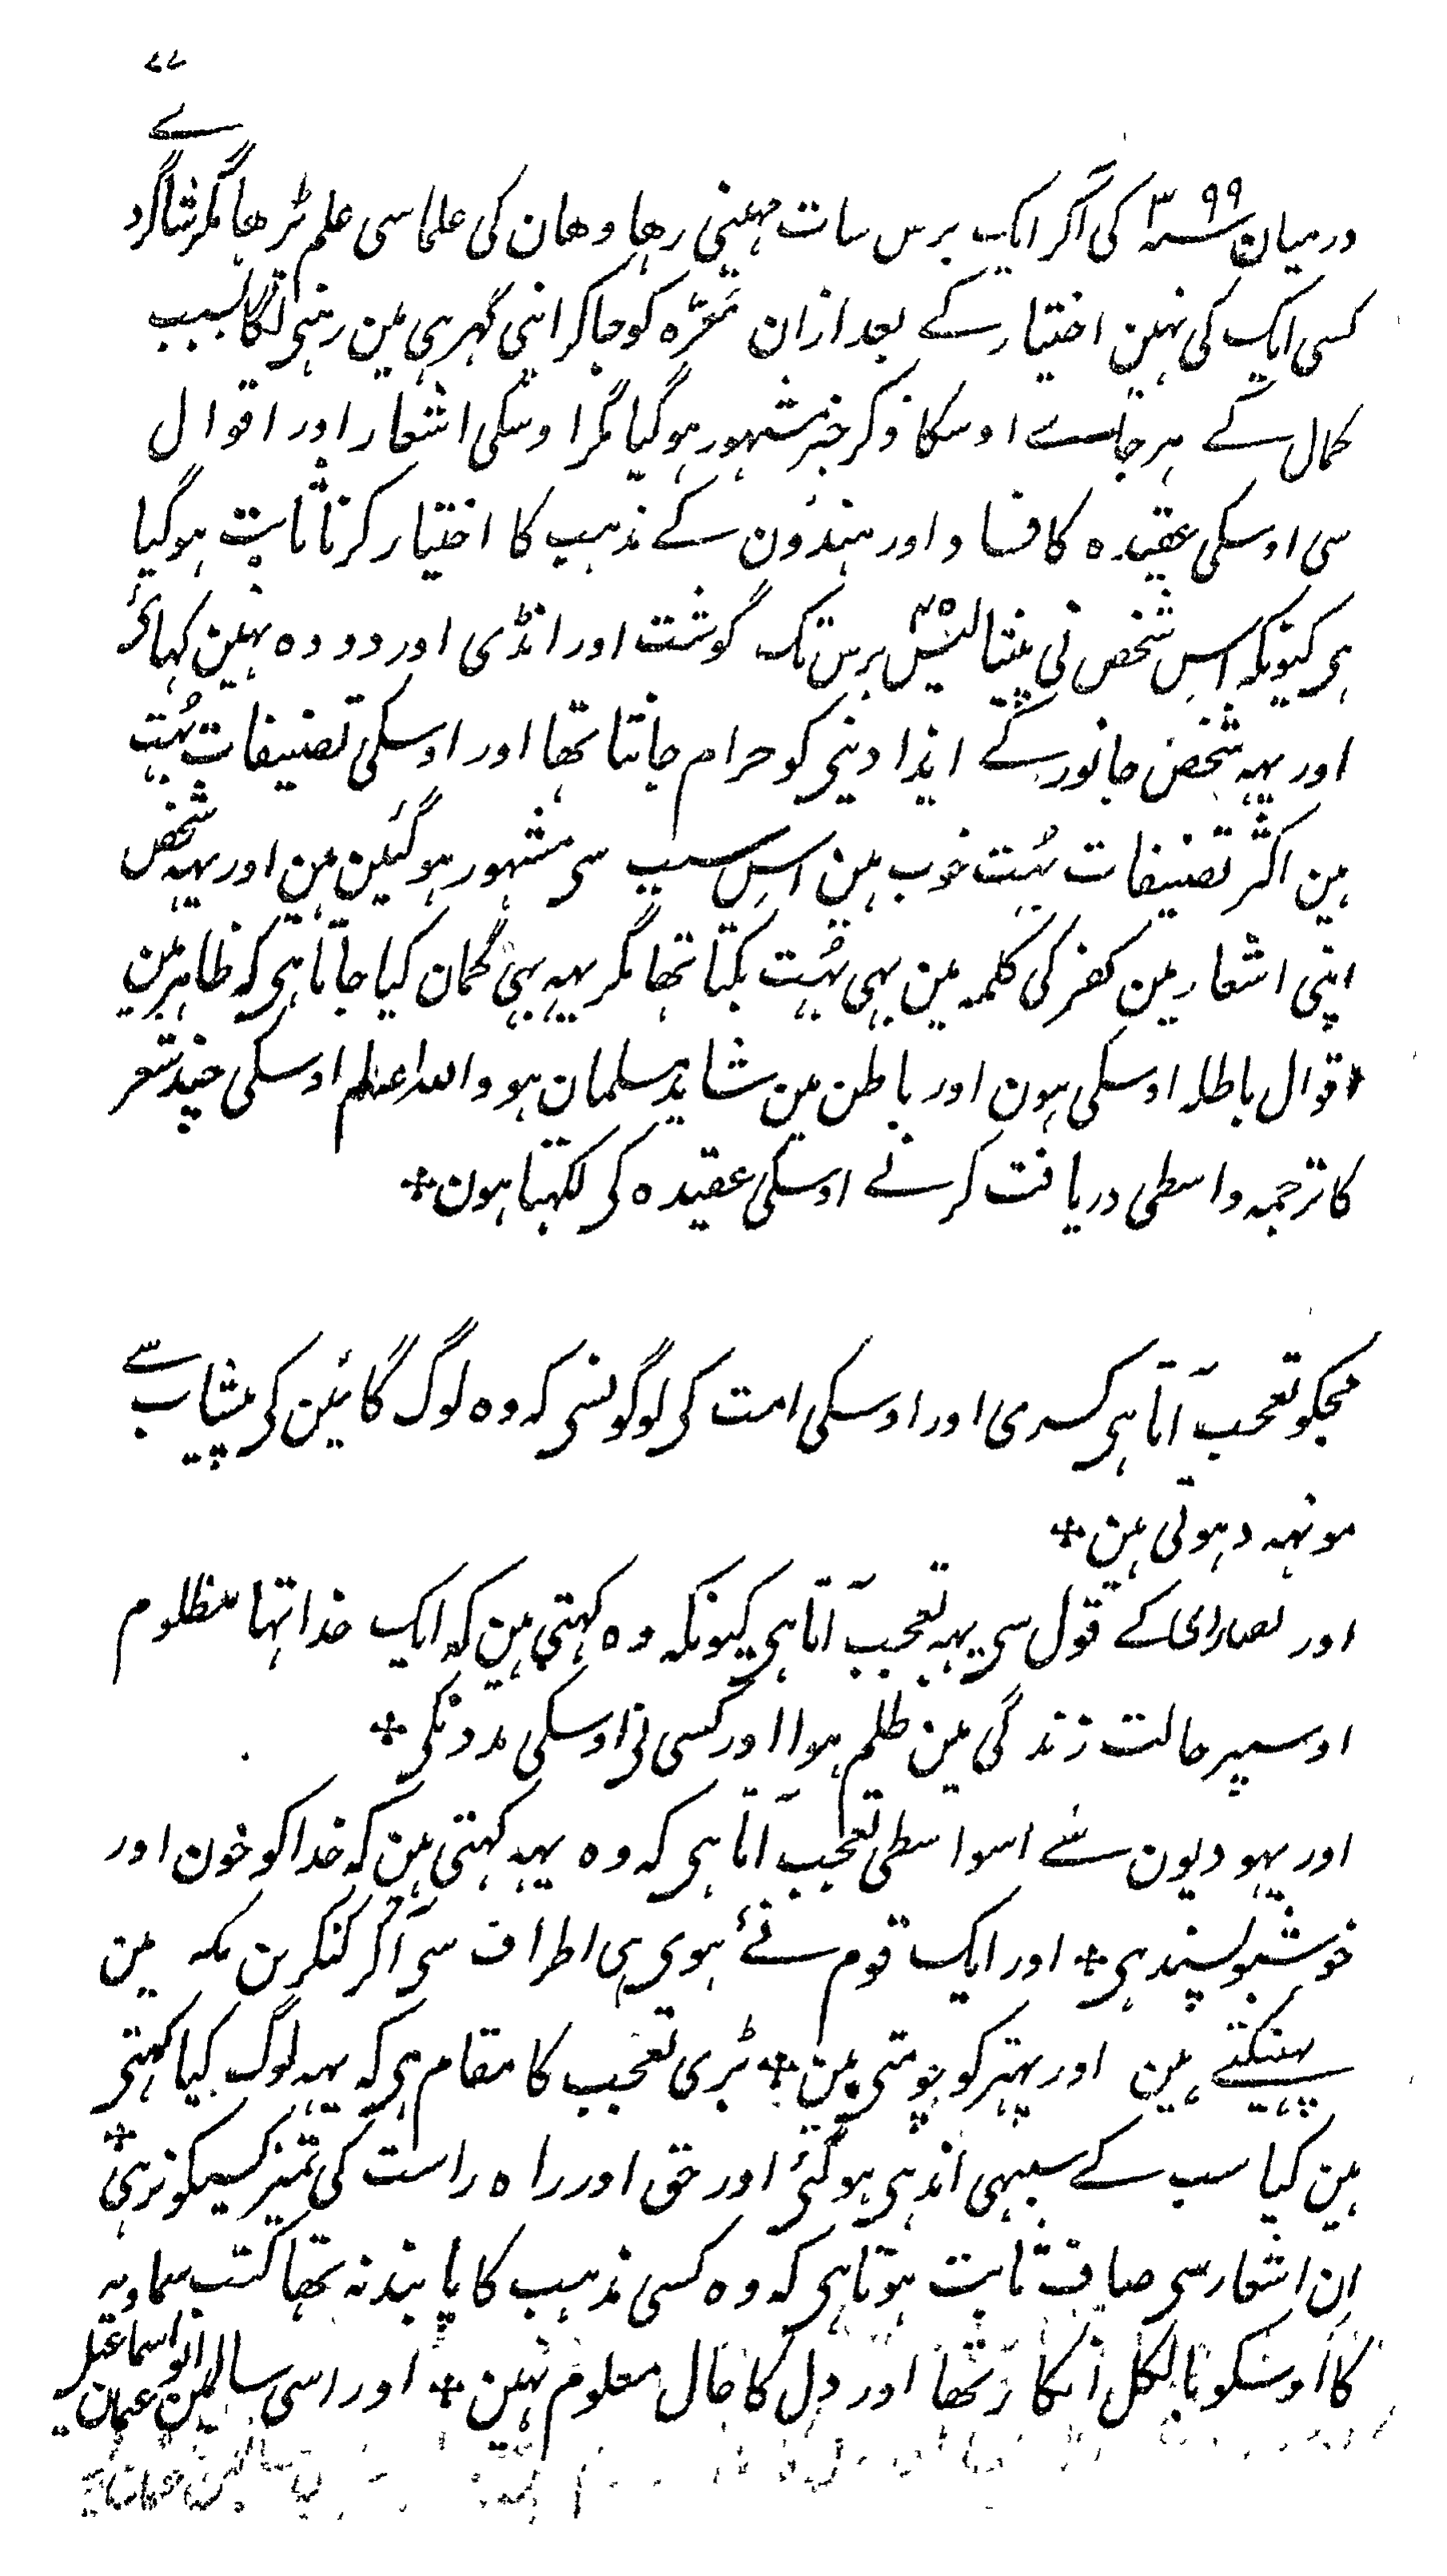 ۷۷
درمیان سنہ ۳۹۹ کی آکر ایک برس سات مہینی رھا وھان کی علما سی علم پڑھا مگر شاگردے
کسی ایک کی نہین اختیار کے بعد ازان معرّہ کو جاکر اپنی گھر ہی مین رہنی لگا بسبب
کمال کے ہر جاے اوسکا ذکر خیر مشہور ہو گیا مگر اوسکی اشعار اور اقوال
سی اوسکی عقیدہ کا فساد اور ہندؤن کے مذہب کا اختیار کرنا ثابت ہو گیا
ہی کیونکہ اِس شخص نی پینتالیس ۴۵ برس تک گوشت اور انڈی اور دودہ نہین کہائی
اور یہہ شخص جانور کے ایذا دینی کو حرام جانتا تھا اور اوسکی تصنیفات بُہت
ہین اکثر تصنیفات بُہت خوب ہین اِس سبب سی مشہور ہو گئین ہین اور یہہ شخص
اپنی اشعار مین کفر کی کلمہ مین بہی بُہت بکتا تھا مگر یہہ بہی گمان کیا جاتا ہی کہ ظاہر مین
اقوال باطلہ اوسکی ہون اور باطن مین شاید مسلمان ہو واللہ اعلم اوسکی چند شعر
کا ترجمہ واسطی دریافت کرنے اوسکی عقیدہ کی لکہتا ہون ✤
مجکو تعجب آتا ہی کسری اور اوسکی امت کی لوگونسی کہ وہ لوگ گائین کی پیشاب سے
مونہہ دہوتی ہین ✤
اور نصاری کے قول سی یہہ تعجب آتا ہی کیونکہ وہ کہتی ہین کہ ایک خدا تہا مظلوم
اوسپر حالت زندگی مین ظلم ہوا اور کسی نی اوسکی مدد نکی ✤
اور یہودیون سے اسواسطی تعجب آتا ہی کہ وہ یہہ کہتی ہین کہ خدا کو خون اور
خوشبو پسند ہی ✤ اور ایک قوم نئے ہوی ہی اطراف سی آکر کنکرین مکہ مین
پہینکتے ہین اور پہتر کو چومتی ہین ✤ بڑی تعجب کا مقام ہی کہ یہہ لوگ کیا کہتی
ہین کیا سب کے سبہی اندہی ہو گئی اور حق اور راہ راست کی تمیز کسیکو نرہی ✤
اِن اشعار سی صاف ثابت ہوتا ہی کہ وہ کسی مذہب کا پابند نہ تھا کتب سماویہ
کا اُوسکو بالکل انکار تھا اور دِل کا حال معلوم نہین ✤ اور اسی سال مین ابو اسماعیل عمان